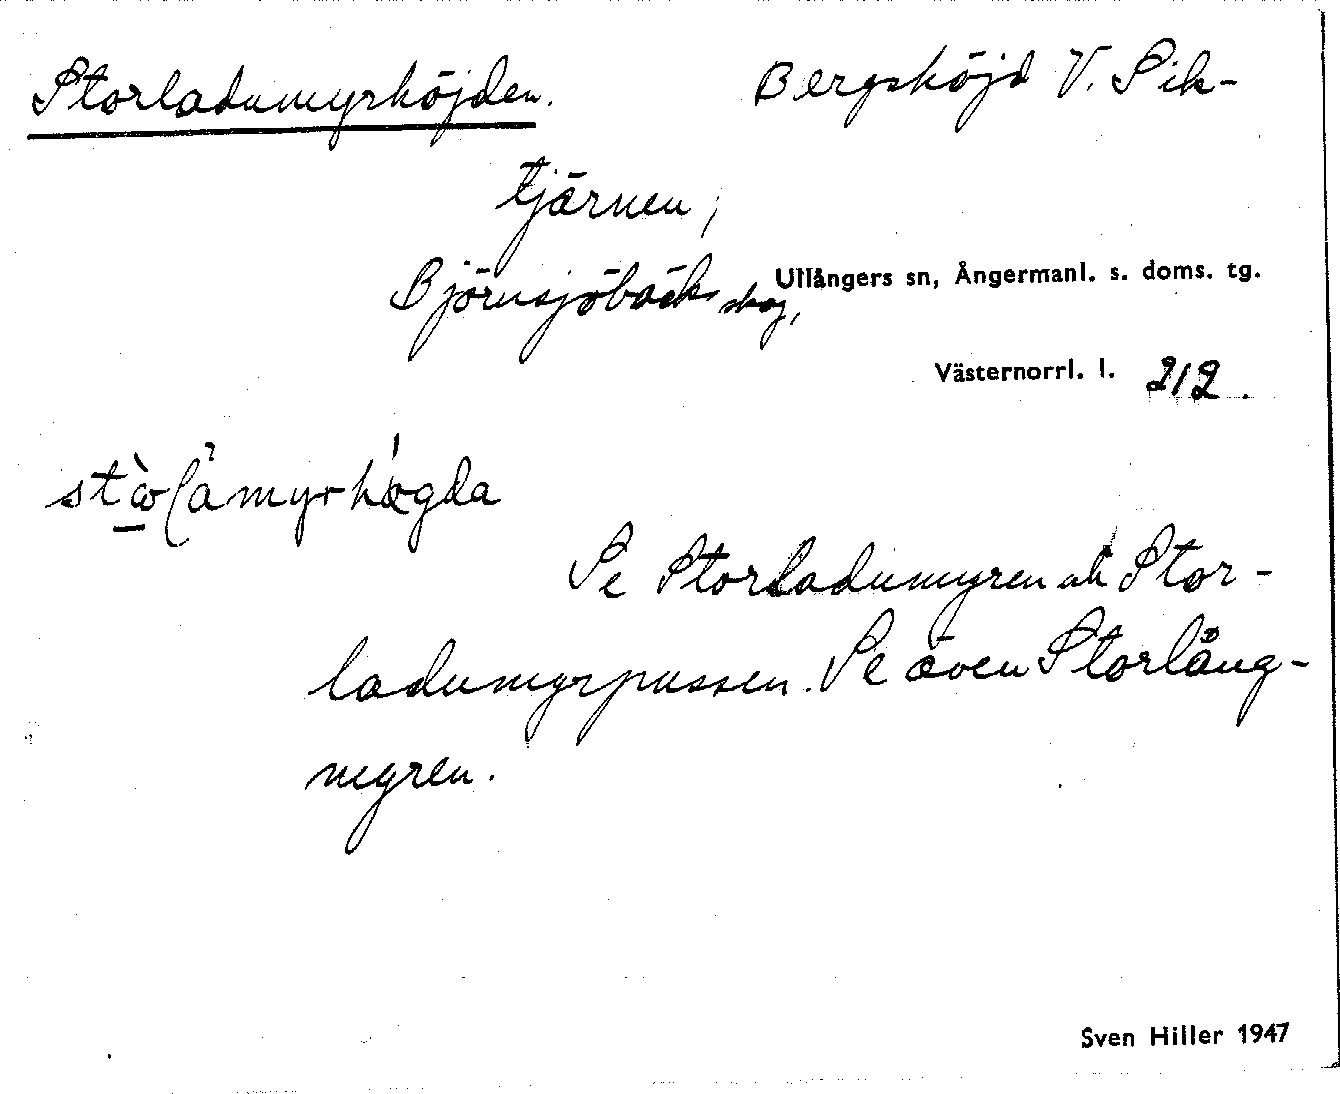 Storladumyrhöjden.
Bergshöjd V. Sik-
tjärnen,
Björnsjöbäcks skog,
Ullångers sn, Ångermanl. s. doms. tg.
Västernorrl. l. 212.
Se Storladumyren och Stor-
ladumyrpussen. Se även Storlång-
myren.
Sven Hiller 1947